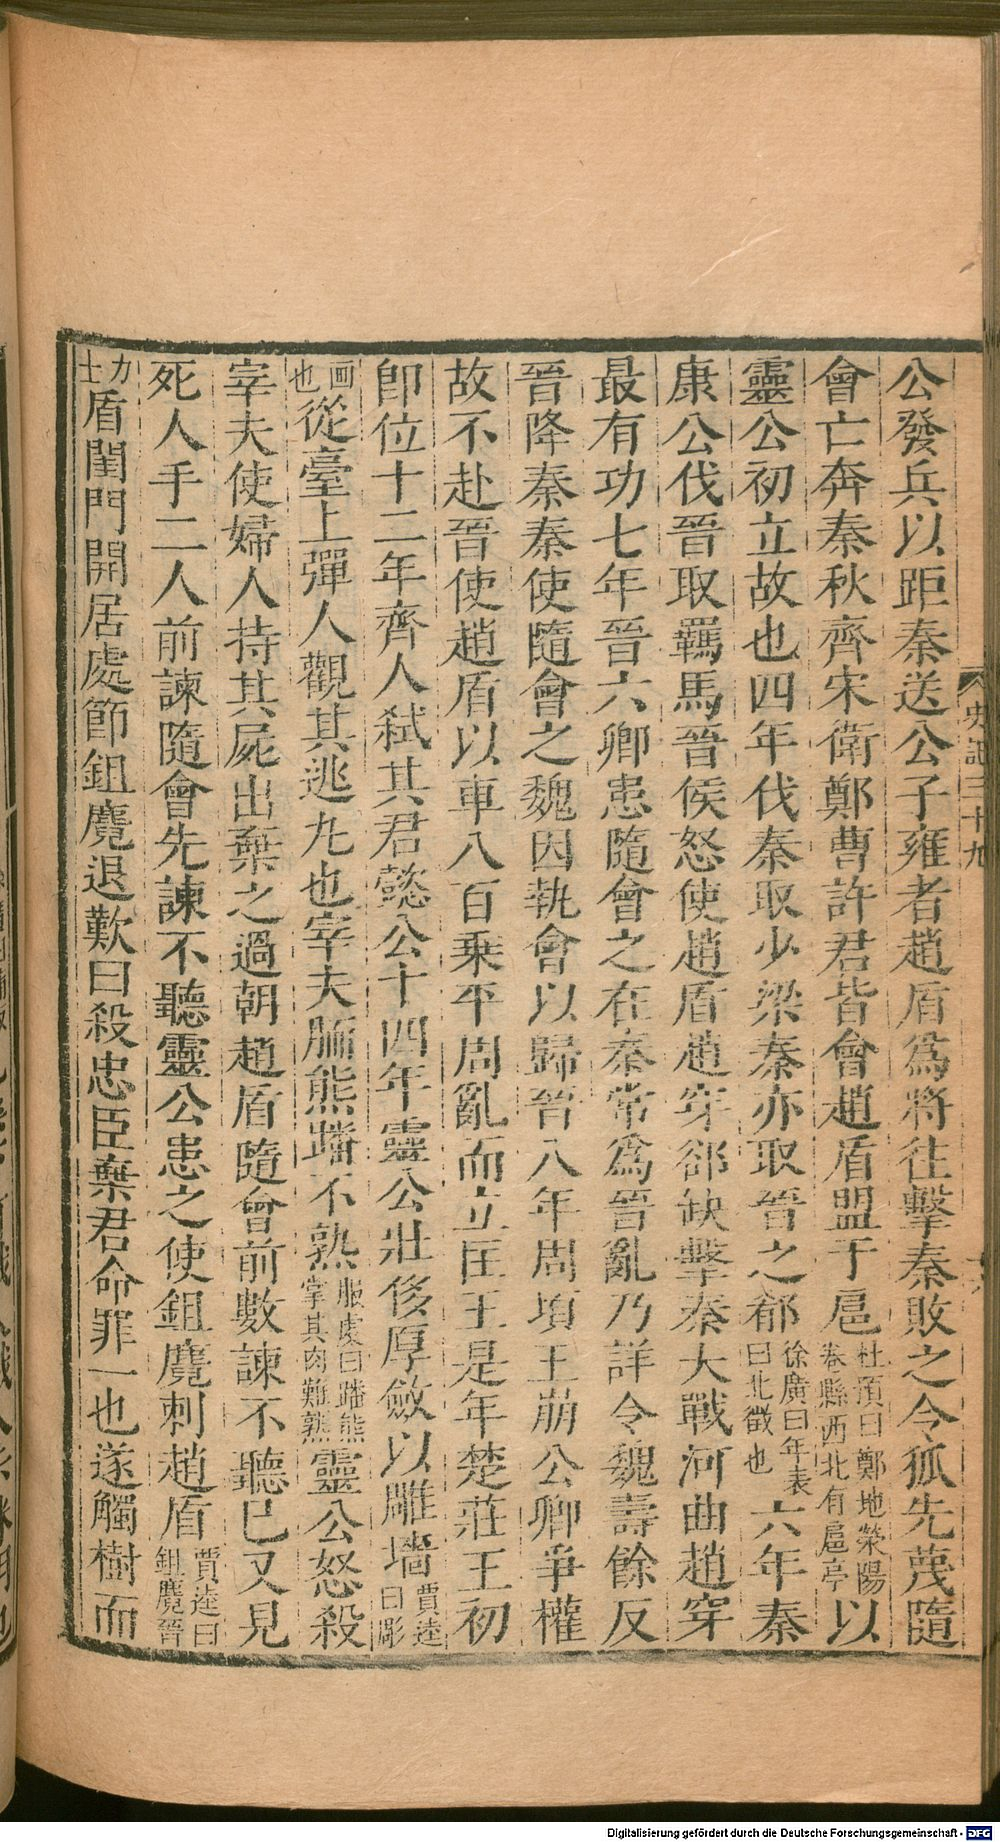 公發兵以距秦送公子雍者趙盾爲將往擊秦敗之令狐先蔑隨
會亡奔秦秋齊宋衛鄭曹許君皆會趙盾盟于扈杜預曰鄭地滎陽春縣西北有扈亭以
靈公初立故也四年伐秦取少梁秦亦取晉之郩徐廣曰年表曰北徵也六年秦
康公伐晉取羈馬晉侯怒使趙盾趙穿郤缺擊秦大戰河曲趙穿
最有功七年晉六卿患隨會之在秦常爲晉亂乃詳令魏壽餘反
晉降秦秦使隨會之魏因執會以歸晉八年周頃王崩公卿爭權
故不赴晉使趙盾以車八百乗平周亂而立匡王是年楚莊王初
卽位十二年齊人弑其君懿公十四年靈公壯侈厚斂以雕墻賈逵曰彫
画也從臺上彈人觀其逃丸也宰夫胹熊蹯不熟服虔曰蹯熊掌其肉難熟靈公怒殺
宰夫使婦人持其屍出棄之過朝趙盾隨會前數諫不聽已又見
死人手二人前諫隨會先諫不聽靈公患之使鉏麑刺趙盾賈逵曰鉏麑晉
力士盾閨門開居處節鉏麑退歎曰殺忠臣棄君命罪一也遂觸樹而
史記三十九
Digitalisierung gefördert durch die Deutsche Forschungsgemeinschaft - DFG